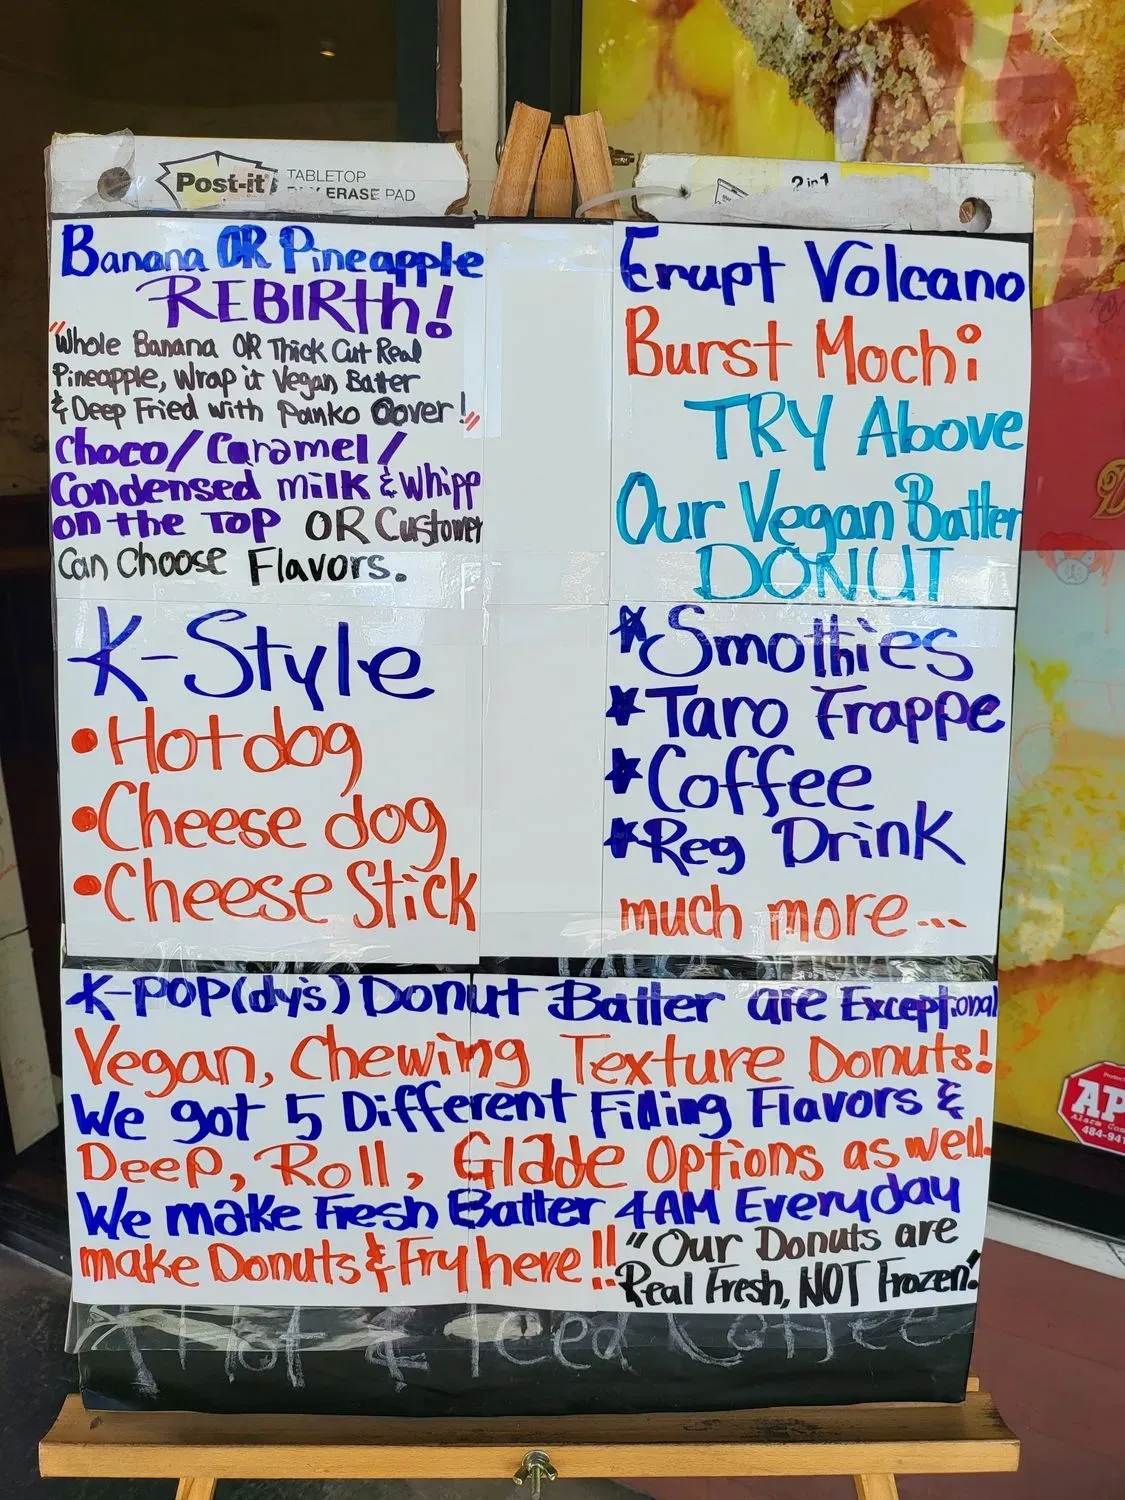 Post-it
TABLETOP
ERASE PAD
2 in 1
Banana OR Pineapple
REBIRth!
"Whole Banana OR Thick Cut Real
Pineapple, Wrap it Vegan Batter
& Deep Fried with Panko Oover!"
Choco/Caramel/
Condensed milk & Whipp
on the Top OR Customer
Can Choose Flavors.
Erupt Volcano
Burst Mochi
TRY Above
Our Vegan Batter
DONUT
K-Style
• Hot dog
• Cheese dog
• Cheese Stick
★ Smothies
★ Taro Frappe
★ Coffee
★ Reg Drink
much more...
K-POP(dy's) Donut Batter are Exceptional
Vegan, Chewing Texture Donuts!
We got 5 Different Filling Flavors &
Deep, Roll, Glade Options as well.
We make Fresh Batter 4AM Everyday
make Donuts & Fry here!!
"Our Donuts are
Real Fresh, NOT Frozen."
Hot & Iced Coffee
484-941